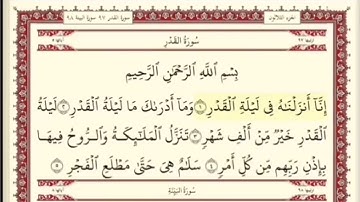 الجزء الثلاثون
سورة القدر ٩٧ سورة البينة ٩٨
سُورَةُ القَدْرِ
بِسْمِ ٱللَّهِ ٱلرَّحْمَٰنِ ٱلرَّحِيمِ
إِنَّآ أَنزَلْنَٰهُ فِى لَيْلَةِ ٱلْقَدْرِ ١ وَمَآ أَدْرَىٰكَ مَا لَيْلَةُ ٱلْقَدْرِ ٢ لَيْلَةُ
ٱلْقَدْرِ خَيْرٌ مِّنْ أَلْفِ شَهْرٍ ٣ تَنَزَّلُ ٱلْمَلَٰٓئِكَةُ وَٱلرُّوحُ فِيهَا
بِإِذْنِ رَبِّهِم مِّن كُلِّ أَمْرٍ ٤ سَلَٰمٌ هِىَ حَتَّىٰ مَطْلَعِ ٱلْفَجْرِ ٥
سُورَةُ البَيِّنَةِ